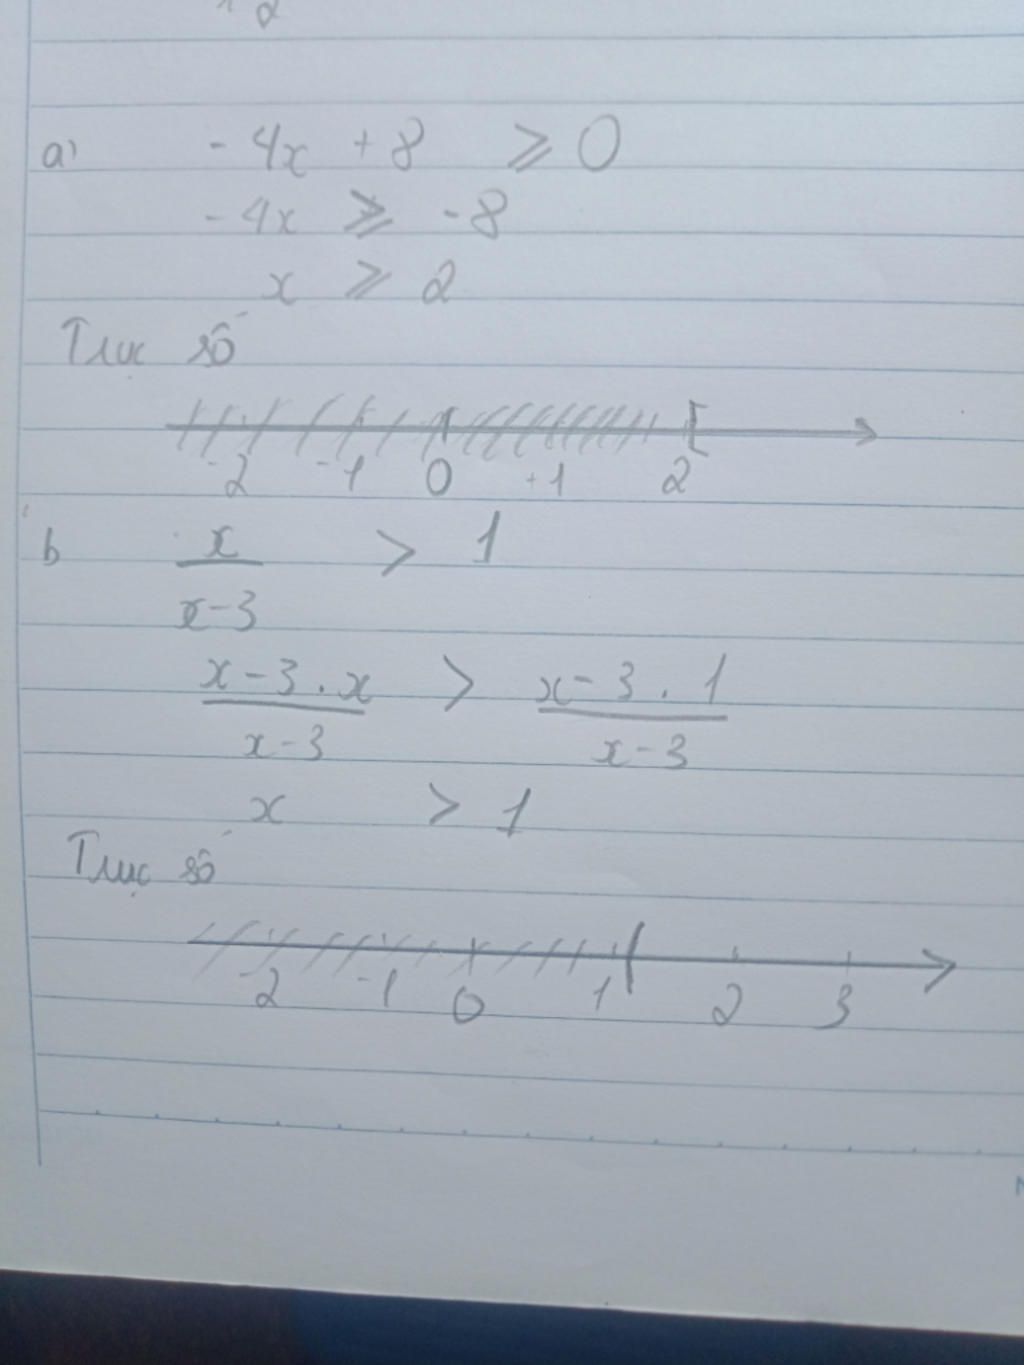 a) -4x +8 ≥ 0
-4x ≥ -8
x ≥ 2
Trục số
-2 -1 0 +1 2
b x/x-3 > 1
x-3.x/x-3 > x-3.1/x-3
x > 1
Trục số
-2 -1 0 1 2 3